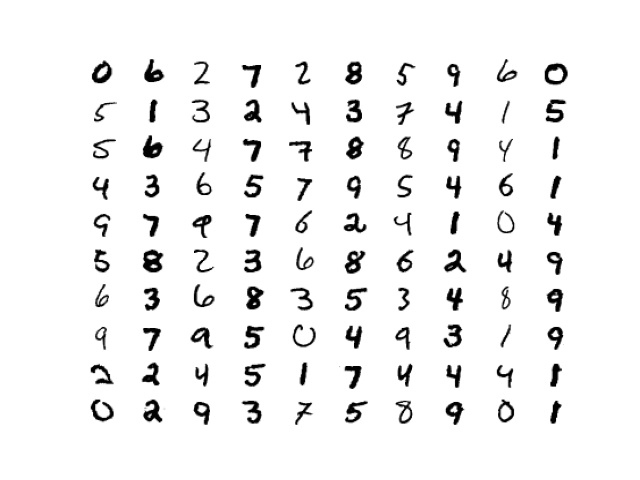 0 6 2 7 2 8 5 9 6 0
5 1 3 2 4 3 7 4 1 5
5 6 4 7 7 8 8 9 4 1
4 3 6 5 7 9 5 4 6 1
9 7 9 7 6 2 4 1 0 4
5 8 2 3 6 8 6 2 4 9
6 3 6 8 3 5 3 4 8 9
9 7 9 5 0 4 9 3 1 9
2 2 4 5 1 7 4 4 4 1
0 2 9 3 7 5 8 9 0 1